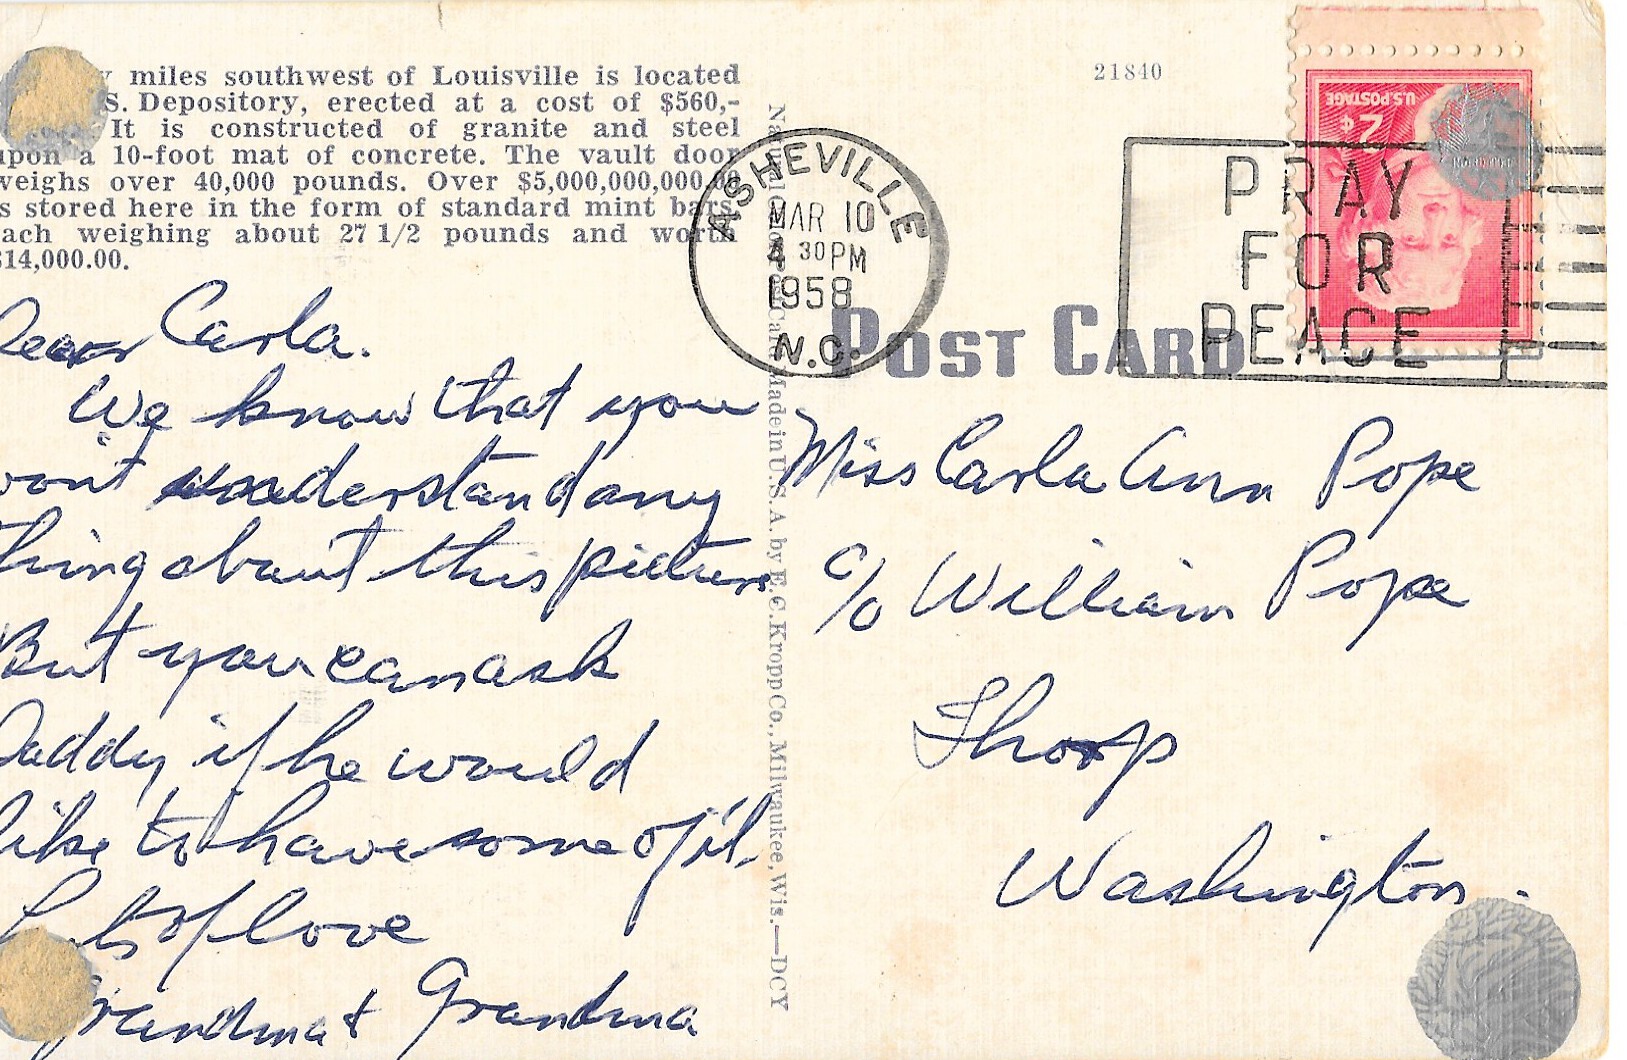 y miles southwest of Louisville is located
S. Depository, erected at a cost of $560,-
It is constructed of granite and steel
upon a 10-foot mat of concrete. The vault door
weighs over 40,000 pounds. Over $5,000,000,000.00
s stored here in the form of standard mint bars,
ach weighing about 27 1/2 pounds and worth
$14,000.00.
Dear Carla.
We know that you
won't understand any
thing about this picture
But you can ask
Daddy if he would
like to have some of it.
Lots of love
Grandma & Grandma
Natural Color Post Card Made in U.S.A. by E.C. Kropp Co., Milwaukee, Wis.—DCY
21840
ASHEVILLE
MAR 10
4 30 PM
1958
N.C.
PRAY
FOR
PEACE
U.S. POSTAGE
2¢
POST CARD
Miss Carla Ann Pope
c/o William Pope
Thorp
Washington.